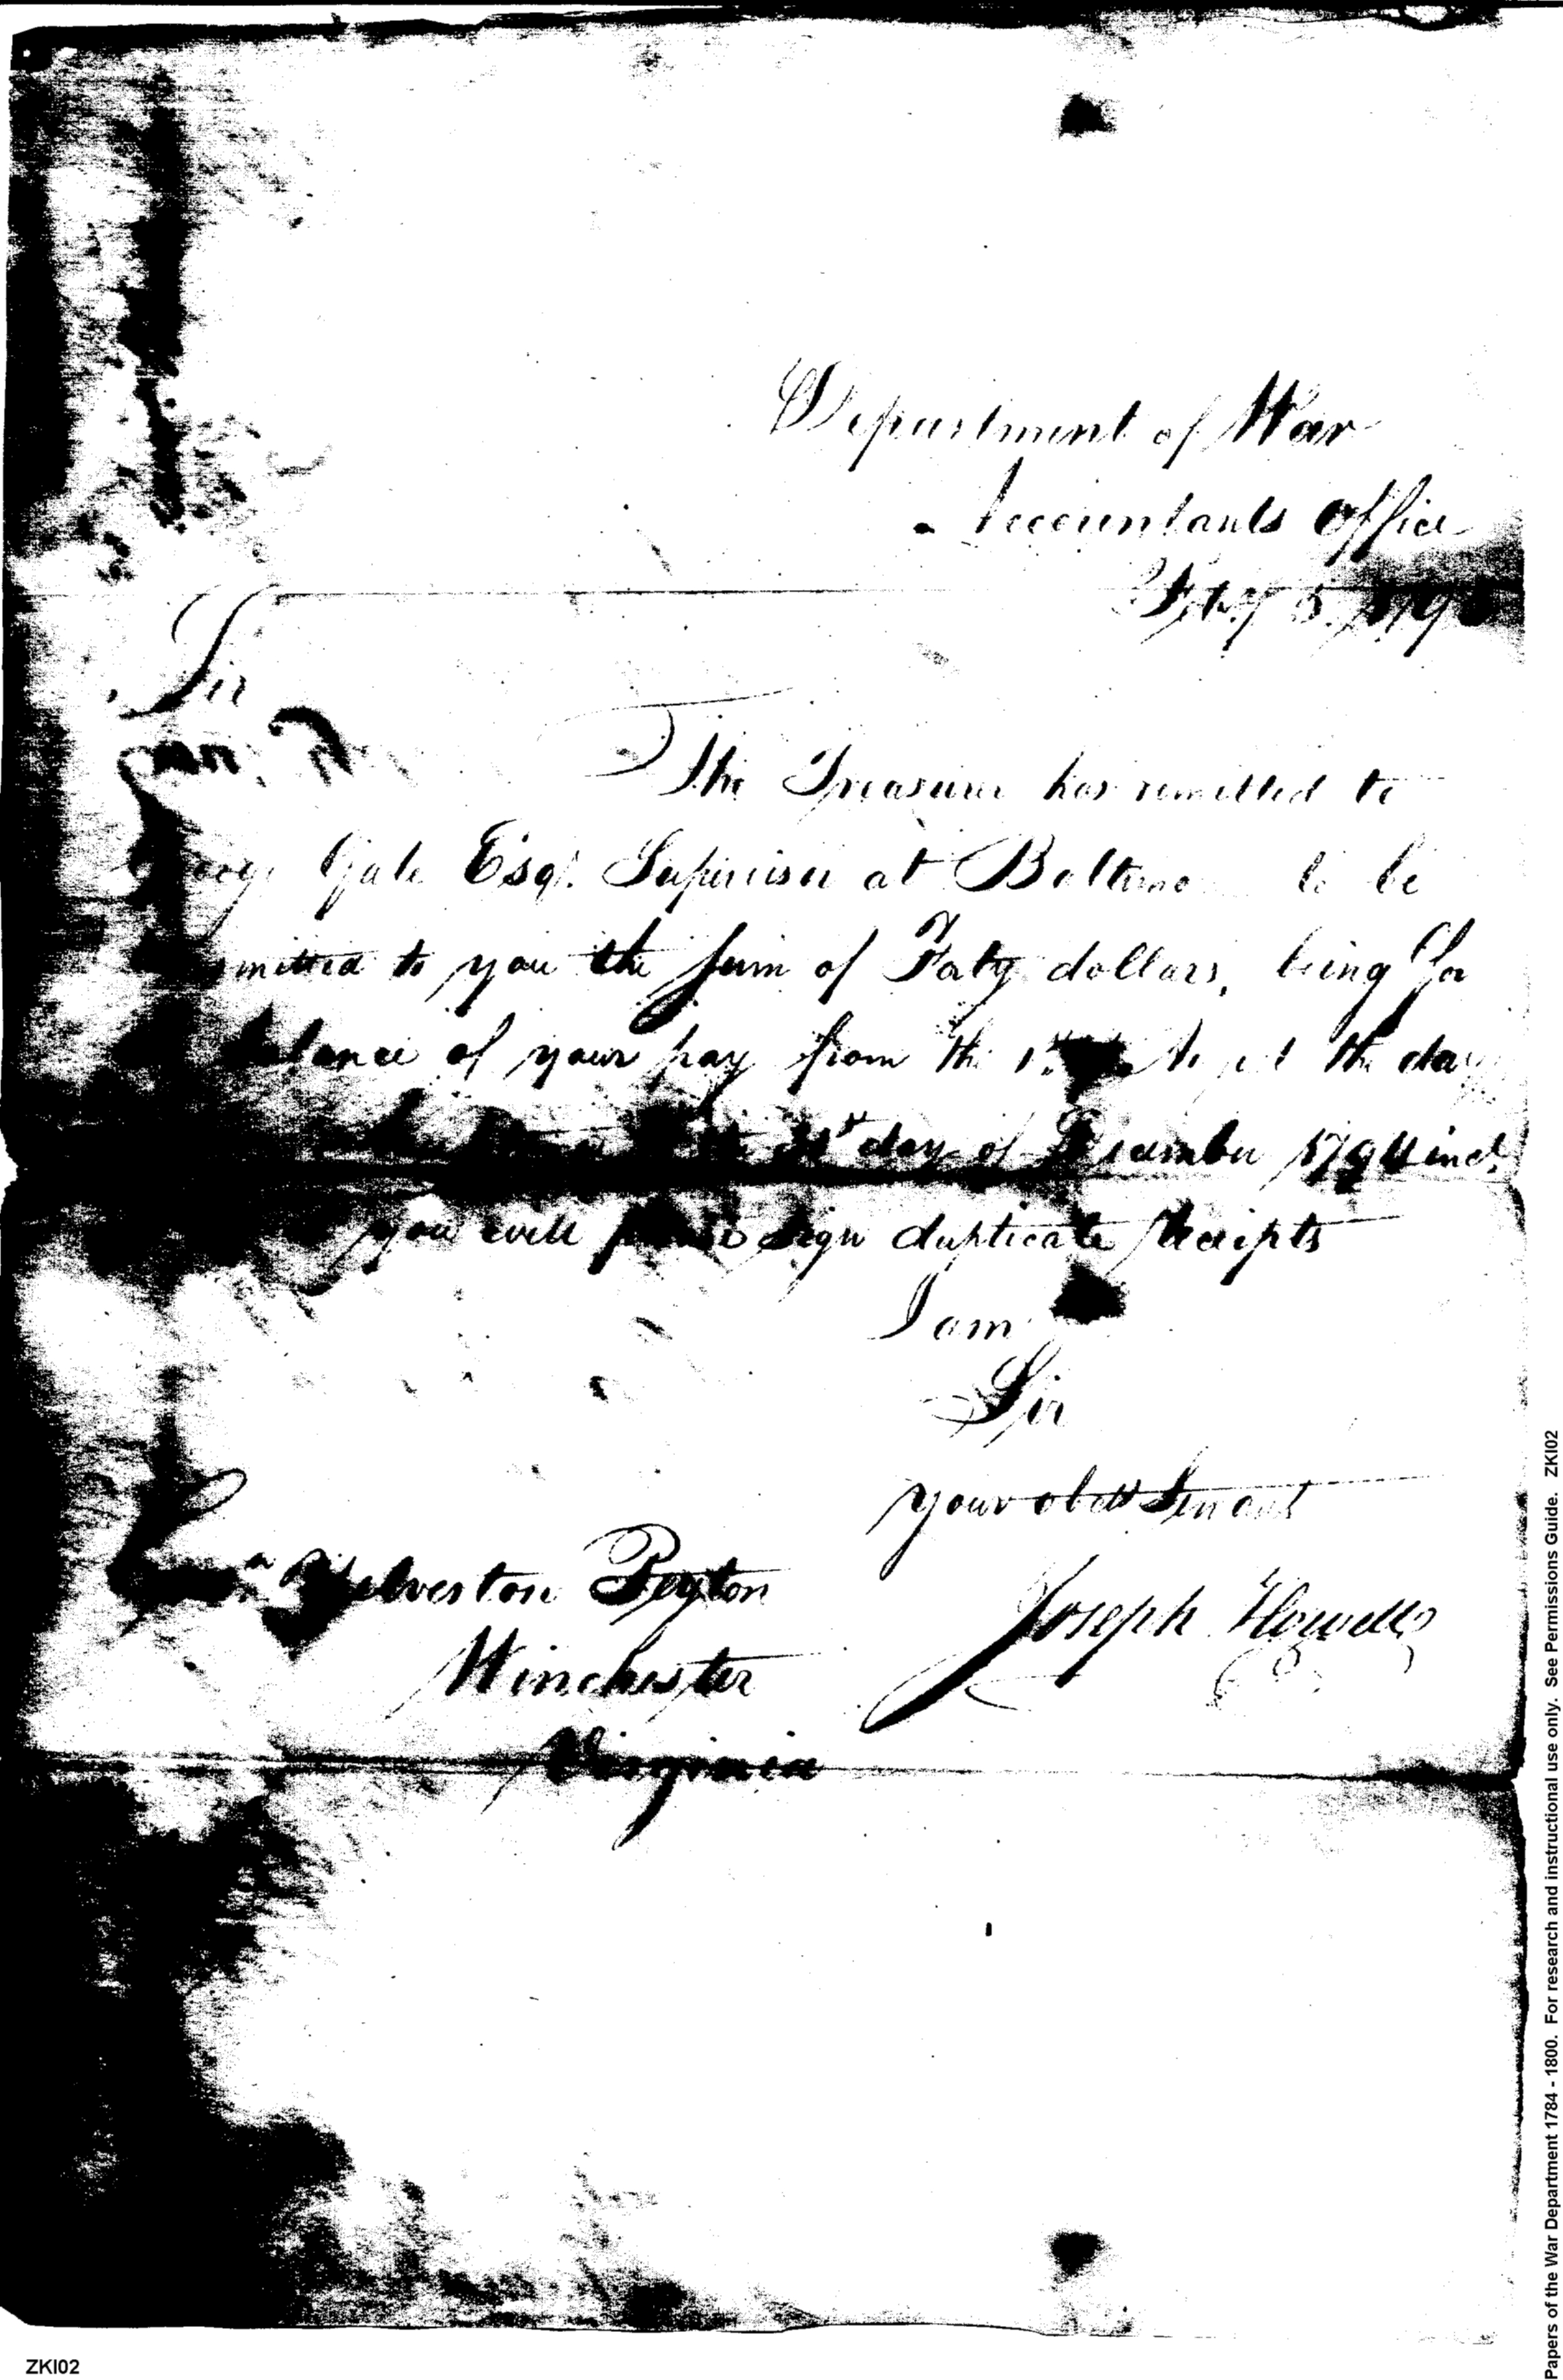 Department of War
Accountants Office
Feby 5. 179
Sir
The Treasurer has remitted to
Gale Esqr. Supervisor at Baltimo to be
mitted to you the sum of Forty dollars, being for
balance of your pay from the 1st the day
31st day of December 1794 incl.
you will please sign duplicate Receipts
I am
Sir
your obdt Servant
Joseph Howell
Yelverton Peyton
Winchester
Virginia
ZKI02
Papers of the War Department 1784 - 1800. For research and instructional use only. See Permissions Guide. ZKI02